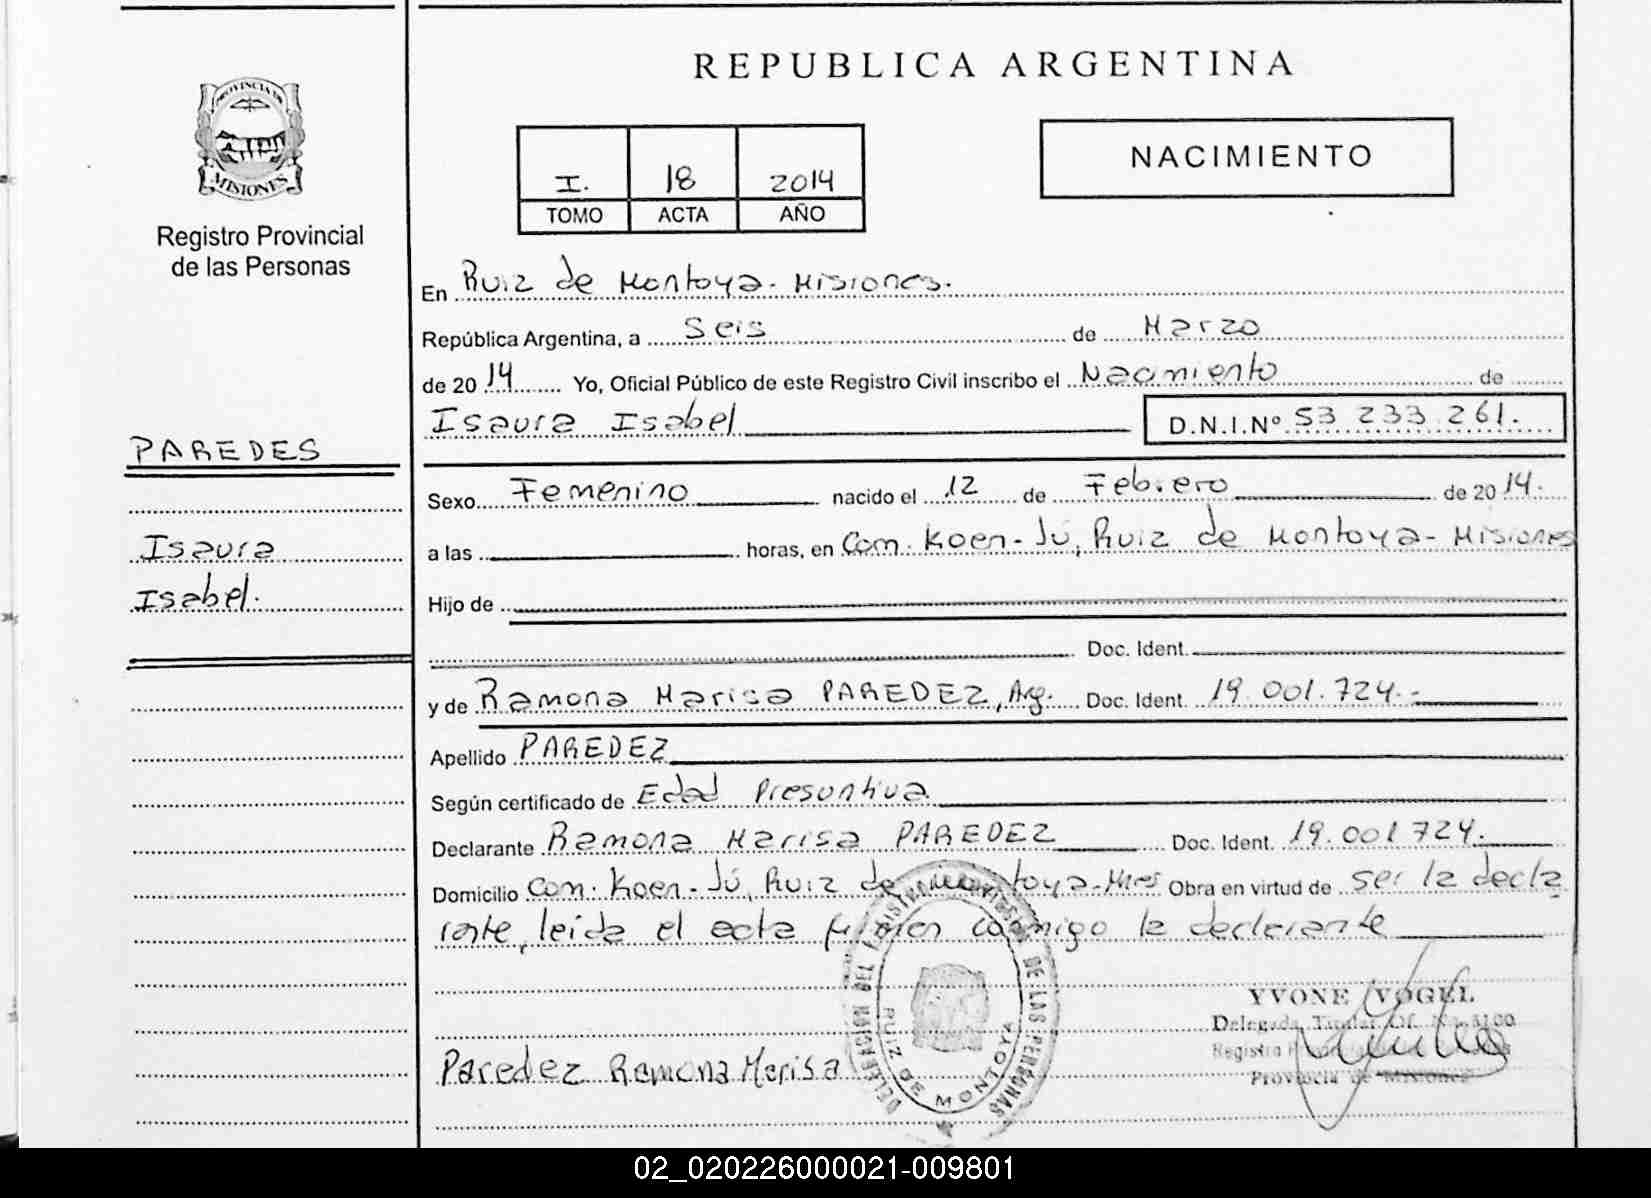 PROVINCIA DE
MISIONES
Registro Provincial
de las Personas
PAREDES
Isaura
Isabel.
REPUBLICA ARGENTINA
I. 18 2014
TOMO ACTA AÑO
NACIMIENTO
En Ruiz de Montoya - Misiones.
República Argentina, a Seis de Marzo
de 20 14 Yo, Oficial Público de este Registro Civil inscribo el Nacimiento de
Isaura Isabel D.N.I.Nº 53 233 261.
Sexo Femenino nacido el 12 de Febrero de 20 14.
a las horas, en Com. Koen-Jú, Ruiz de Montoya - Misiones
Hijo de
Doc. Ident.
y de Ramona Marisa PAREDEZ, Arg. Doc. Ident. 19.001.724.-
Apellido PAREDEZ
Según certificado de Edad Presuntiva
Declarante Ramona Marisa PAREDEZ Doc. Ident. 19.001 724.
Domicilio Com. Koen-Jú, Ruiz de Montoya-Mnes Obra en virtud de ser la decla
rante, leída el acta firman conmigo la declarante
DELEGACION DEL REGISTRO PROVINCIAL DE LAS PERSONAS
RUIZ DE MONTOYA
Paredez Ramona Marisa
YVONE VOGEL
Delegada Titular Of.
Registro
Provincia de Misiones
02_020226000021-009801